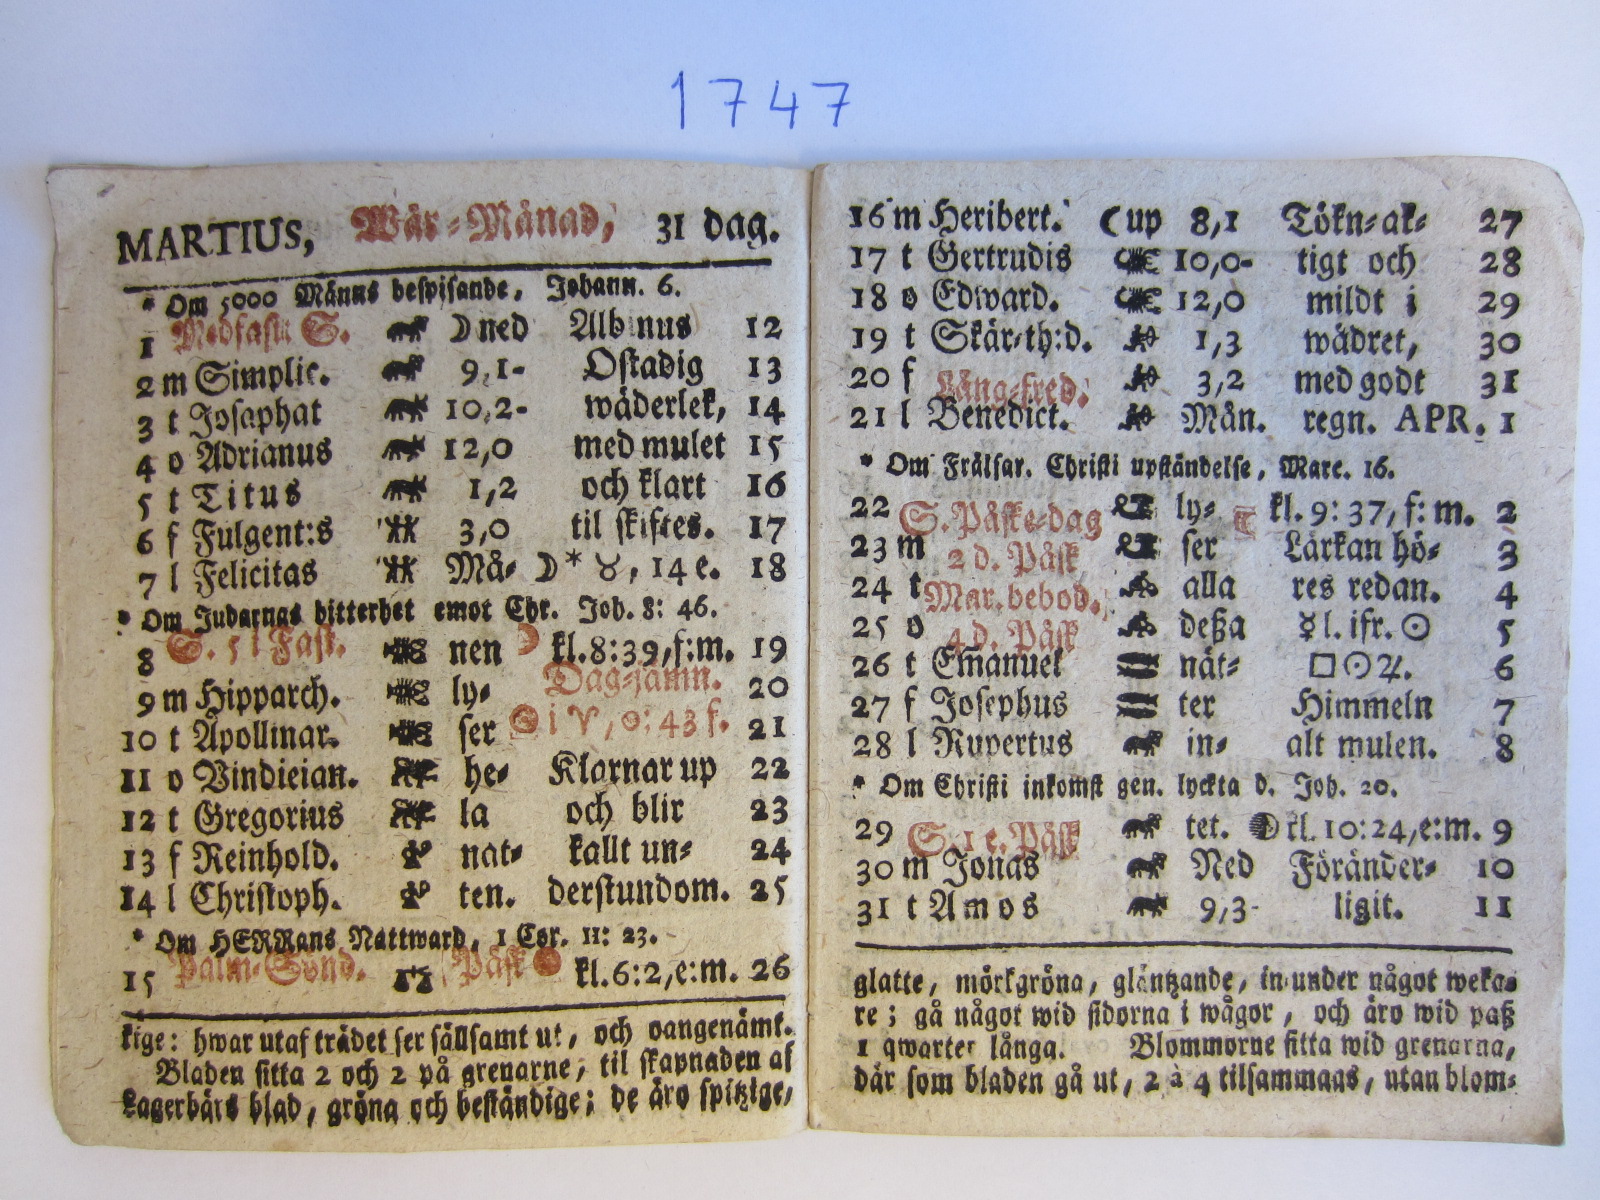 1747
MARTIUS, Wår-Månad, 31 dag.
* Om 5000 Männs bespisande, Johann. 6.
1 Medfast: S. ☽ ned Albinus 12
2 m Simplic. 9,1- Ostadig 13
3 t Josaphat 10,2- wäderlek, 14
4 o Adrianus 12,0 med mulet 15
5 t Titus 1,2 och klart 16
6 f Fulgent:s 3,0 til skiftes. 17
7 l Felicitas Må- ☽ * ♉, 14 e. 18
* Om Judarnas bitterhet emot Chr. Joh. 8: 46.
8 S. 5 i Fast. nen ☽ kl. 8:39, f:m. 19
9 m Hipparch. ly- Dag-jämn. 20
10 t Apollinar. ser ☉ i ♈, 0: 43 f. 21
11 o Vindieian. he- Klarnar up 22
12 t Gregorius la och blir 23
13 f Reinhold. nat- kallt un- 24
14 l Christoph. ten. derstundom. 25
* Om HERRans Nattward, 1 Cor. 11: 23.
15 Palm-Sönd. Påsk kl. 6:2, e:m. 26
kige: hwar utaf trädet ser sällsamt ut, och oangenämt.
Bladen sitta 2 och 2 på grenarne, til skapnaden af
Lagerbärs blad, gröna och beständige; de äro spitzige,
16 m Heribert. ☾ up 8,1 Tökn-ak- 27
17 t Gertrudis 10,0- tigt och 28
18 o Edward. 12,0 mildt i 29
19 t Skär-th:d. 1,3 wädret, 30
20 f Lång-fred. 3,2 med godt 31
21 l Benedict. Mån. regn. APR. 1
* Om Frälsar. Christi upständelse, Marc. 16.
22 S. Påske-dag ly- kl. 9: 37, f: m. 2
23 m 2 d. Påsk ser Lärkan hö- 3
24 t Mar. bebod. alla res redan. 4
25 o 4 d. Påsk deßa ☿ l. ifr. ☉ 5
26 t Emanuel nät- □ ☉ ♃. 6
27 f Josephus ter Himmeln 7
28 l Rupertus in- alt mulen. 8
* Om Christi inkomst gen. lyckta d. Joh. 20.
29 S. 1 e. Påsk tet. kl. 10:24, e:m. 9
30 m Jonas Ned Föränder- 10
31 t Amos 9,3- ligit. 11
glatte, mörkgröna, gläntzande, in under något weka-
re; gå något wid sidorna i wågor, och äro wid paß
1 qwarter långa. Blommorne sitta wid grenarna,
där som bladen gå ut, 2 à 4 tilsammans, utan blom-